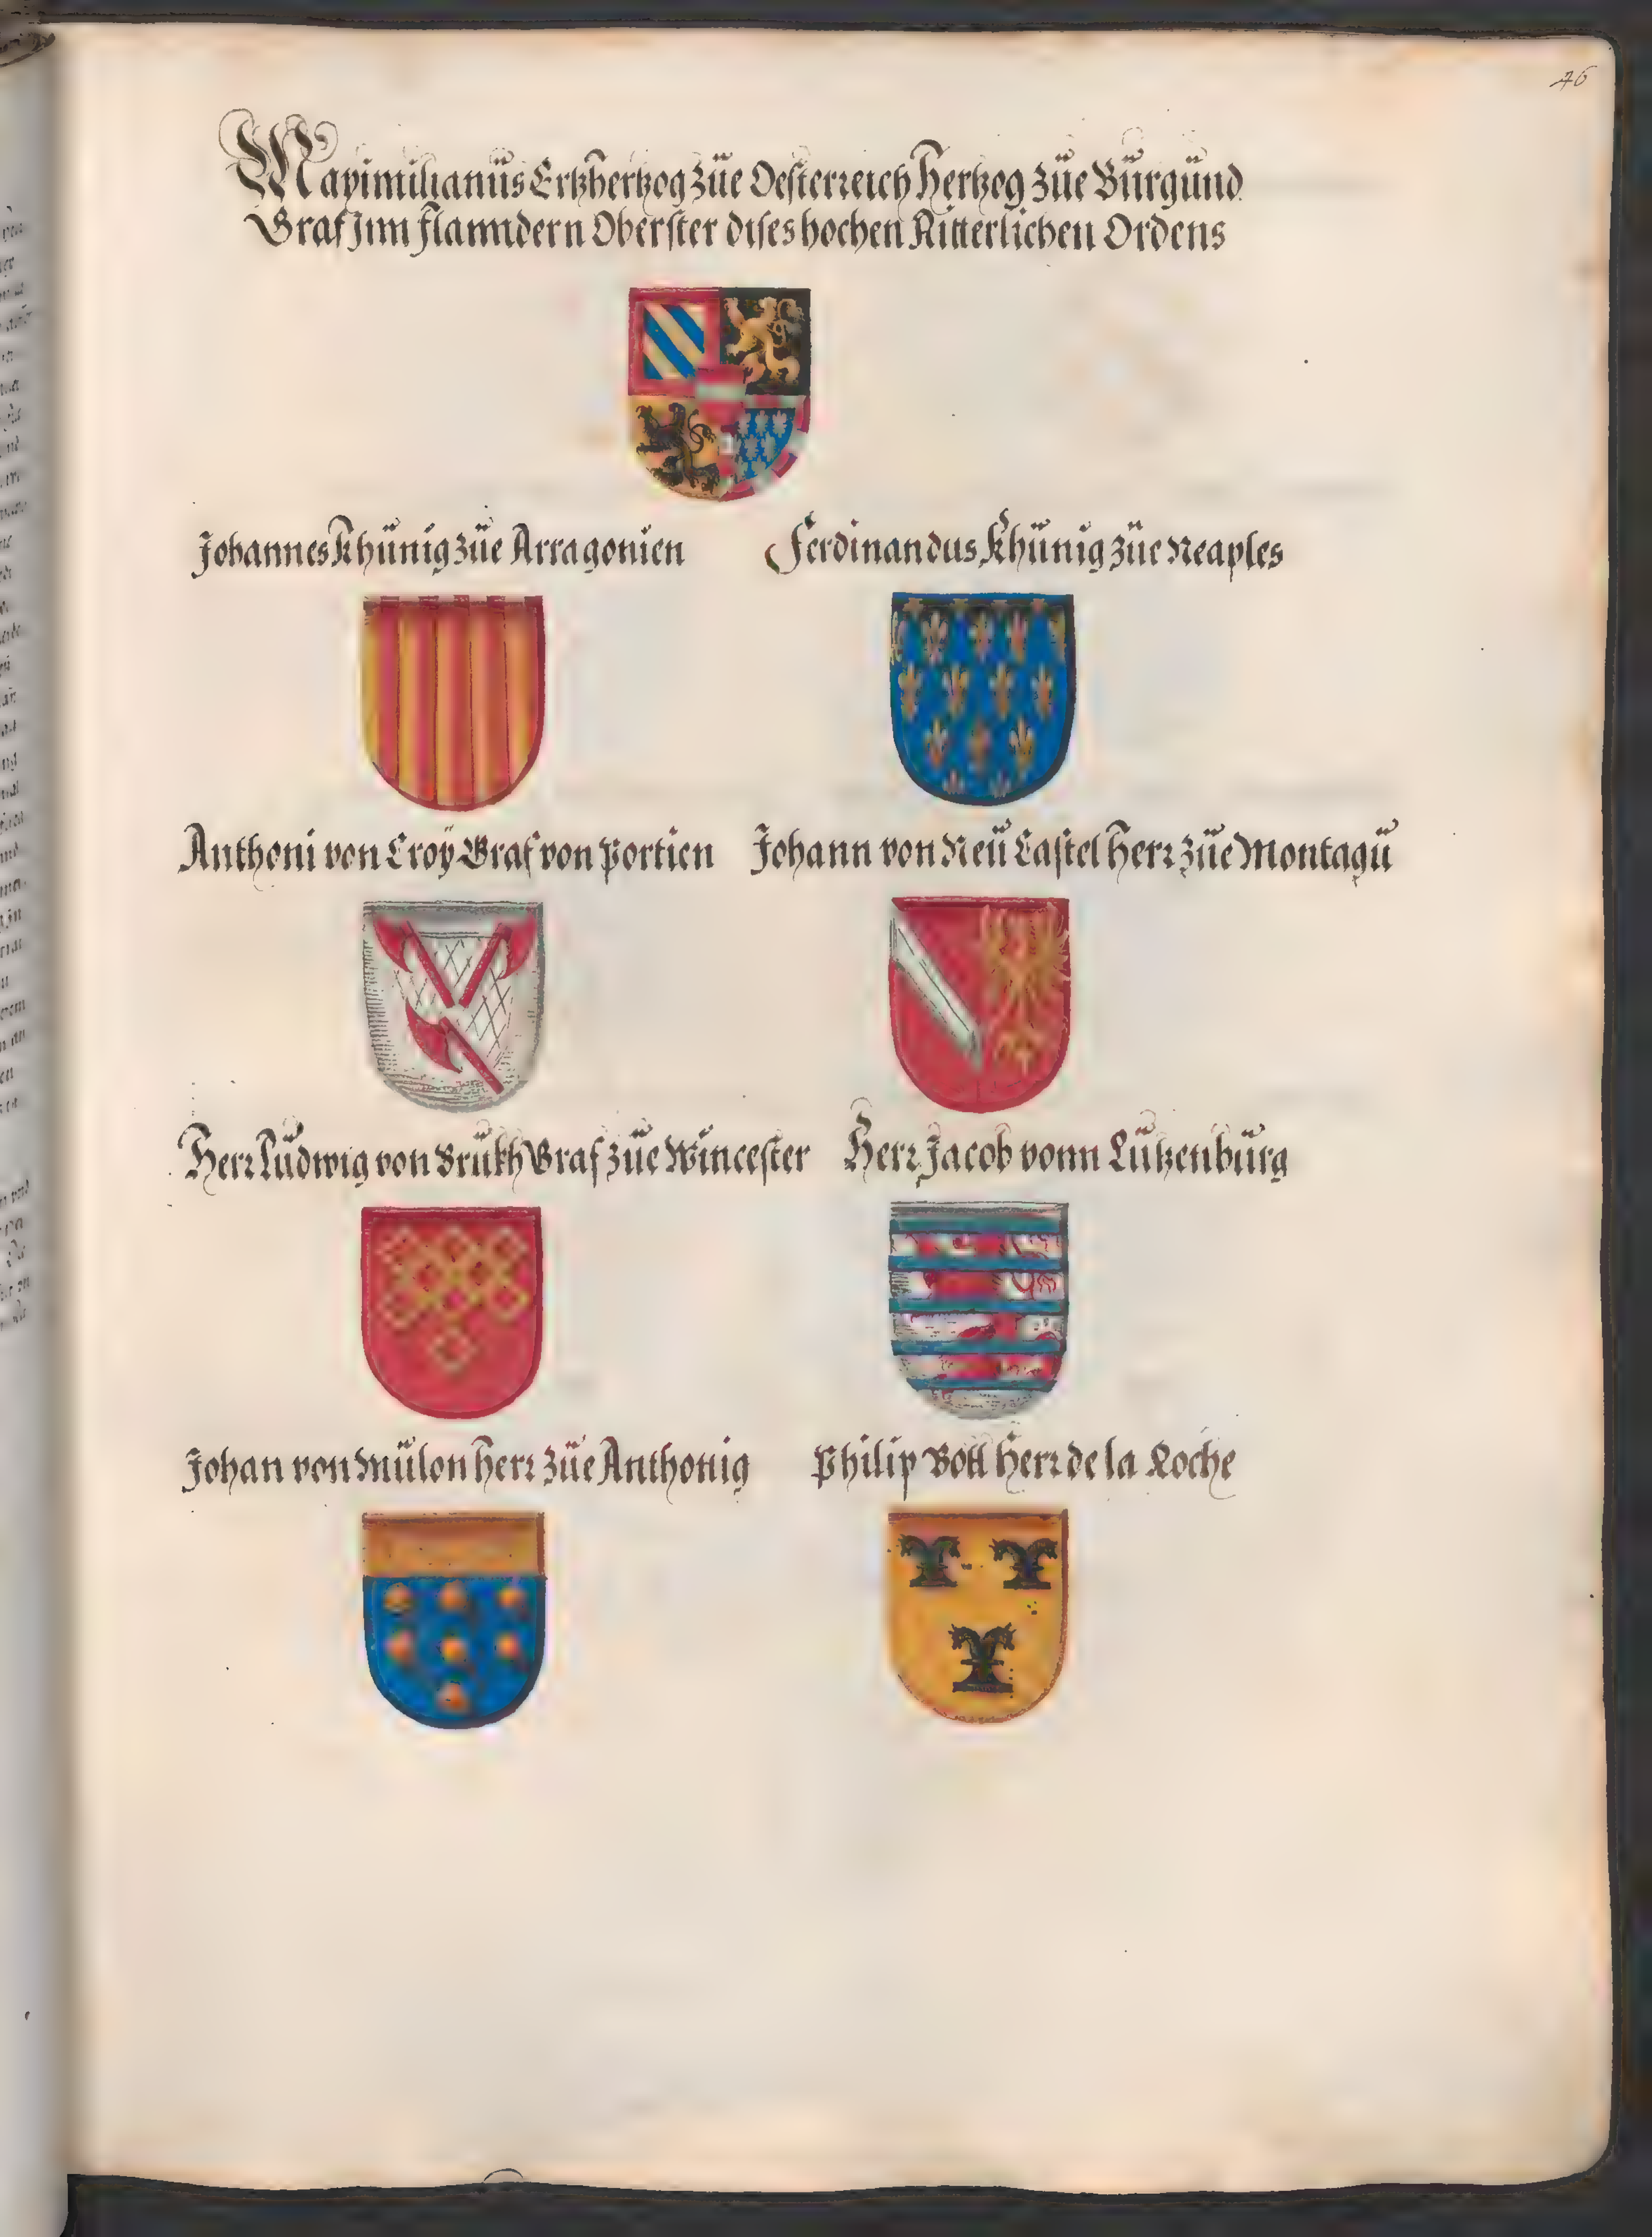 46
Maximilianüs Ertzhertzog züe Oesterreich Hertzog züe Bürgünd
Graf Jnn Flanndern Oberster dises hochen Ritterlichen Ordens
Johannes Khünig züe Arragonien
Ferdinandus Khünig züe Neaples
Anthoni von Croÿ Graf von Portien
Johann von Neü Castel Herr züe Montagü
Herr Lüdwig von Brükh Graf züe Wincester
Herr Jacob vonn Lützenbürg
Johan von Mülon Herr züe Anthonig
Philip Bott Herr de la Roche